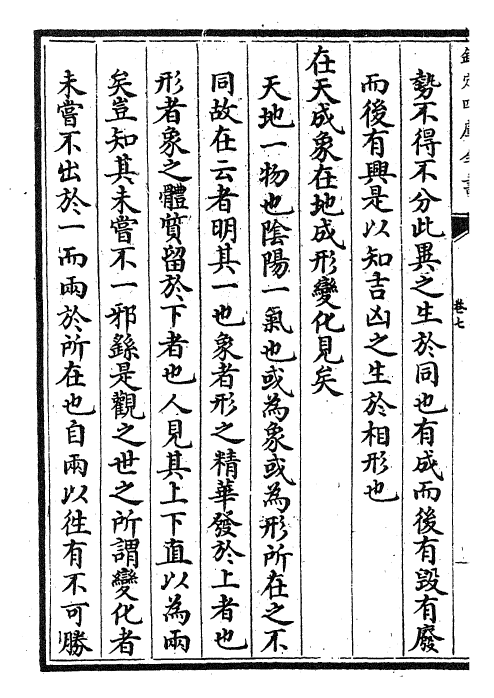 欽定四庫全書
卷七
勢不得不分此異之生於同也有成而後有毀有廢
而後有興是以知吉凶之生於相形也
在天成象在地成形變化見矣
天地一物也陰陽一氣也或為象或為形所在之不
同故在云者明其一也象者形之精華發於上者也
形者象之體質留於下者也人見其上下直以為兩
矣豈知其未嘗不一邪繇是觀之世之所謂變化者
未嘗不出於一而兩於所在也自兩以徃有不可勝